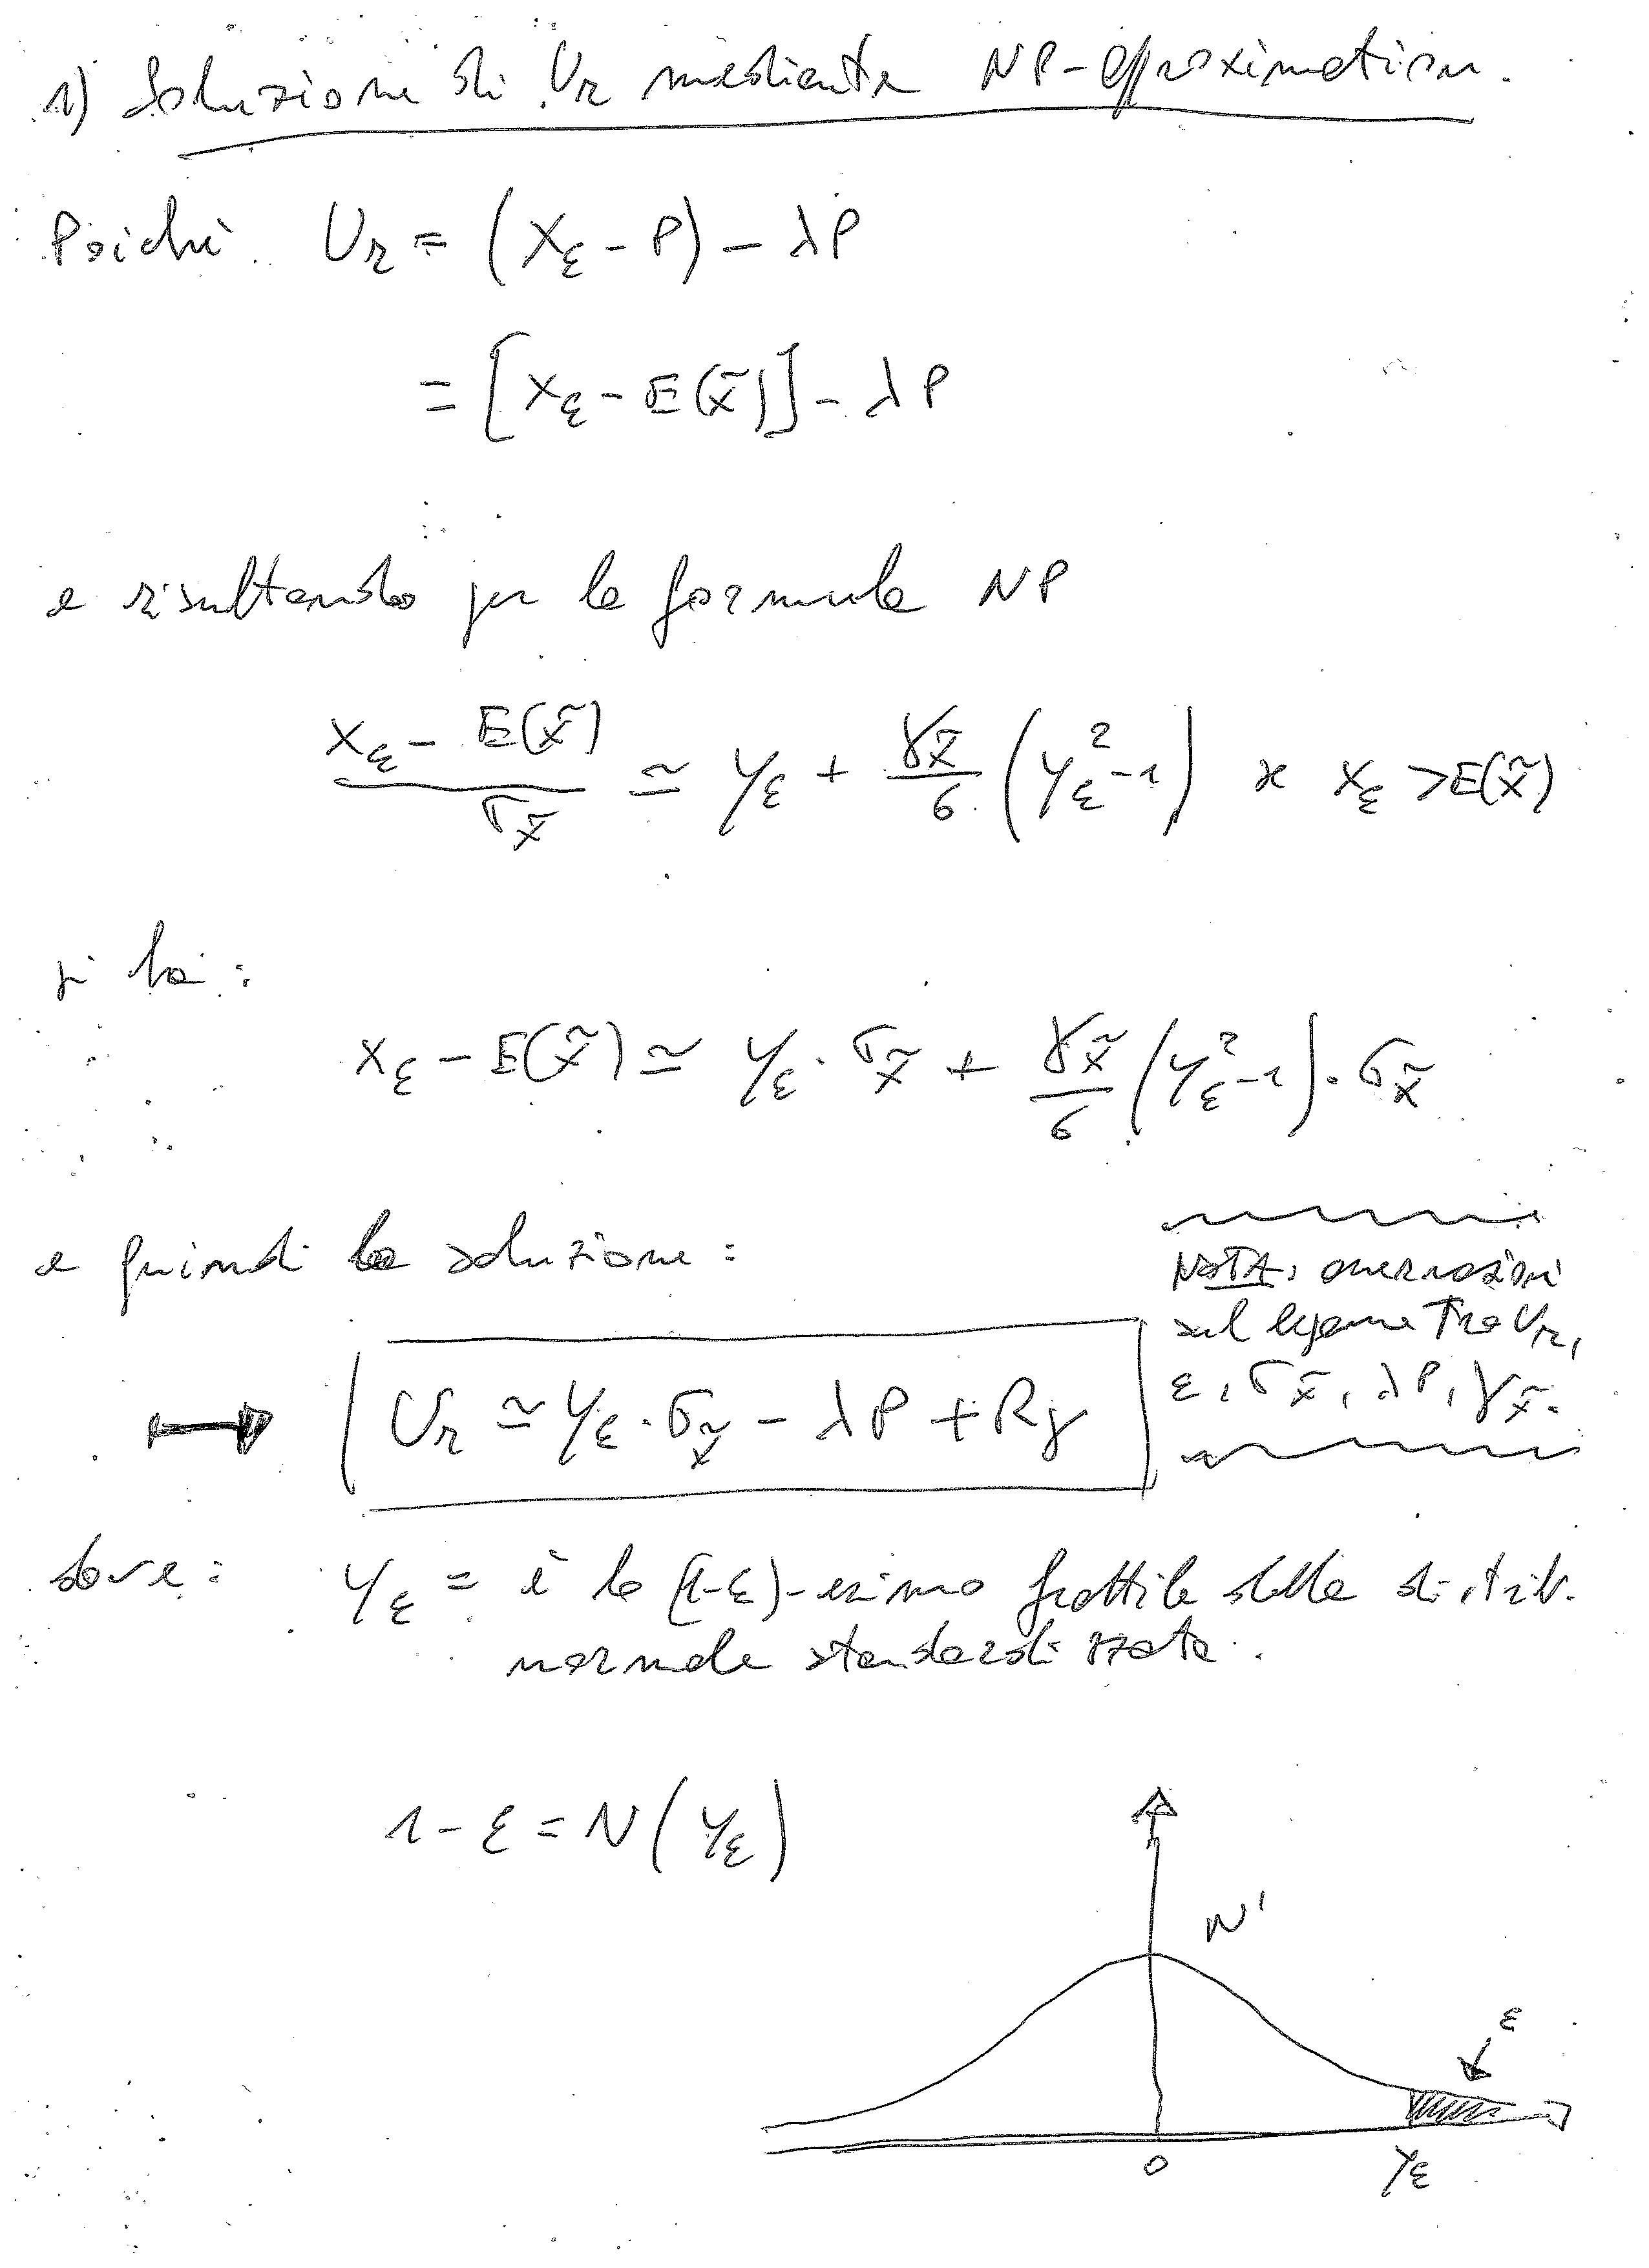 1) Soluzione di Ur mediante NP-approximation.
Poiché Ur = (xε - P) - λP
= [xε - E(x̃)] - λP
e risultando per la formula NP
(xε - E(x̃)) / σx̃ ≃ yε + γx̃/6 (yε² - 1) se xε > E(x̃)
si ha:
xε - E(x̃) ≃ yε · σx̃ + γx̃/6 (yε² - 1) · σx̃
e quindi la soluzione:
NOTA: osservazioni
sul legame tra Ur,
ε, σx̃, λP, γx̃.
Ur ≃ yε · σx̃ - λP + Rγ
dove: yε = è lo (1-ε)-esimo frattile della distrib.
normale standardizzata.
1 - ε = N(yε)
N'
ε
0 yε